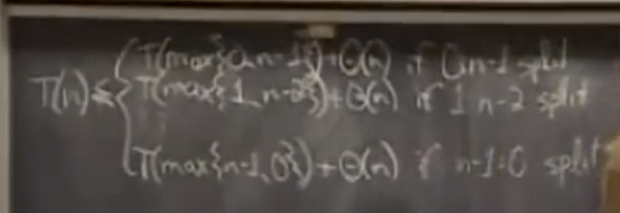 T(max{0,n-1})+Θ(n) if 0,n-1 split
T(n)≤{ T(max{1,n-2})+Θ(n) if 1 n-2 split
⋮
T(max{n-1,0})+Θ(n) if n-1:0 split